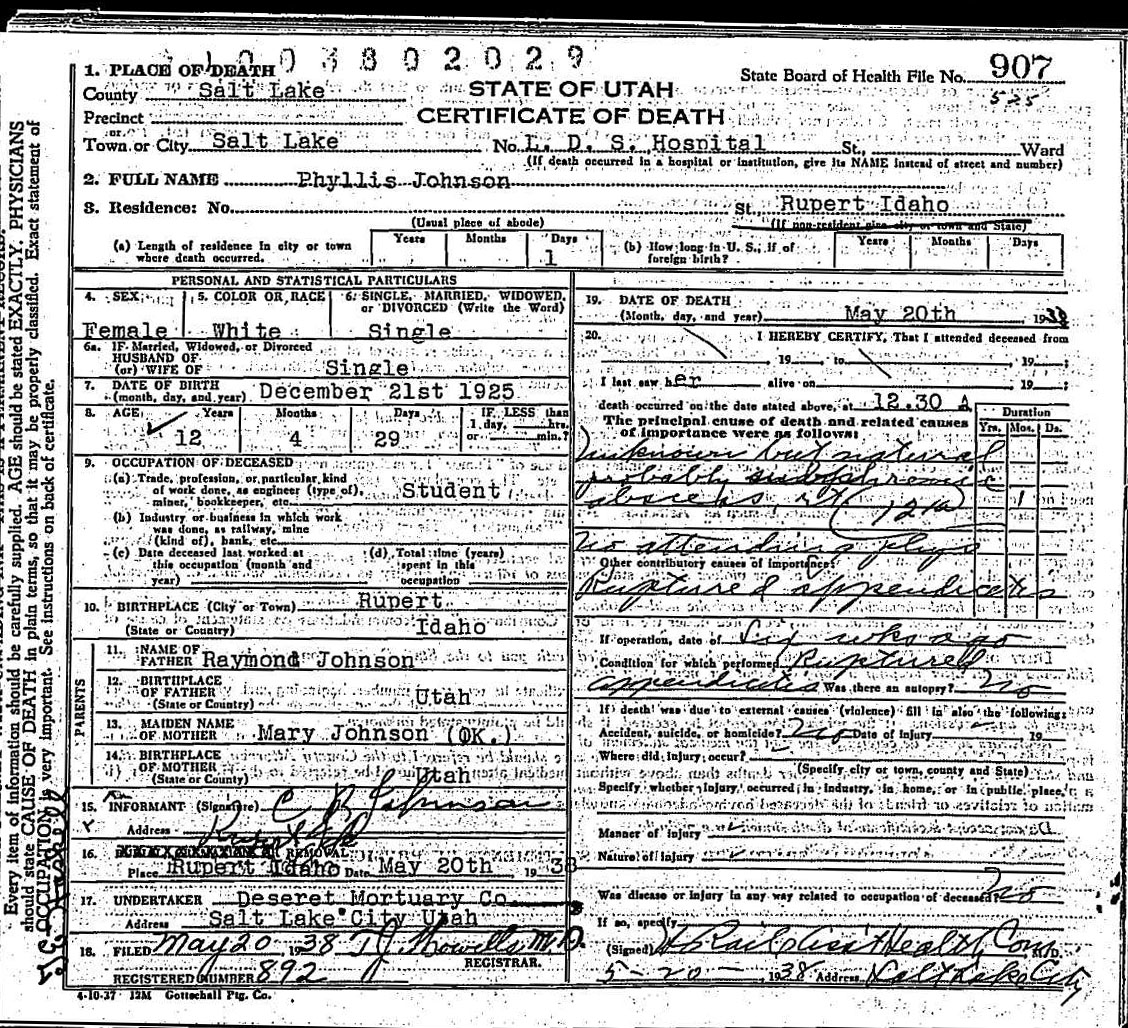 1003802029
1. PLACE OF DEATH
County Salt Lake
STATE OF UTAH
State Board of Health File No. 907
525
Precinct
CERTIFICATE OF DEATH
or
Town or City Salt Lake No. L. D. S. Hospital St., Ward
(If death occurred in a hospital or institution, give its NAME instead of street and number)
2. FULL NAME Phyllis Johnson
3. Residence: No. St. Rupert Idaho
(Usual place of abode) (If non-resident give city or town and State)
(a) Length of residence in city or town where death occurred. Years Months Days 1
(b) How long in U. S., if of foreign birth? Years Months Days
PERSONAL AND STATISTICAL PARTICULARS
4. SEX 5. COLOR OR RACE 6. SINGLE, MARRIED, WIDOWED,
or DIVORCED (Write the Word)
Female White Single
6a. IF Married, Widowed, or Divorced
HUSBAND OF
(or) WIFE OF Single
7. DATE OF BIRTH
(month, day, and year) December 21st 1925
8. AGE Years Months Days IF LESS than
1 day, hrs.
or min.?
12 4 29
9. OCCUPATION OF DECEASED
(a) Trade, profession, or particular kind
of work done, as engineer (type of),
miner, bookkeeper, etc. Student
(b) Industry or business in which work
was done, as railway, mine
(kind of), bank, etc.
(c) Date deceased last worked at
this occupation (month and
year)
(d) Total time (years)
spent in this
occupation
10. BIRTHPLACE (City or Town) Rupert
(State or Country) Idaho
PARENTS
11. NAME OF
FATHER Raymond Johnson
12. BIRTHPLACE
OF FATHER Utah
13. MAIDEN NAME
OF MOTHER Mary Johnson (OK.)
14. BIRTHPLACE
OF MOTHER
(State or County) Utah
15. INFORMANT (Signature) C R Johnson
Address Rupert Ida
16. REMOVAL
Place Rupert Idaho Date May 20th 1938
17. UNDERTAKER Deseret Mortuary Co.
Address Salt Lake City Utah
18. FILED May 20 1938 T.J. Howells M.D.
REGISTRAR.
REGISTERED NUMBER 892
4-10-37 12M Gottschall Ptg. Co.
19. DATE OF DEATH
(Month, day, and year) May 20th 1938
20. I HEREBY CERTIFY, That I attended deceased from
19 to 19
I last saw her alive on 19
death occurred on the date stated above, at 12.30 A
The principal cause of death and related causes
of importance were as follows:
Duration
Yrs. Mos. Ds.
Unknown but natural
probably subphrenic
abscess, rt (121a) 1
No attending phys
Other contributory causes of importance:
Ruptured appendicitis
If operation, date of Six wks ago
Condition for which performed Ruptured
appendicitis Was there an autopsy? No
If death was due to external causes (violence) fill in also the following:
Accident, suicide, or homicide? No Date of injury 19
Where did injury occur?
(Specify city or town, county and State)
Specify whether injury occurred in industry, in home, or in public place,
Manner of injury
Nature of injury
Was disease or injury in any way related to occupation of deceased? No
If so, specify
(Signed) Asst Health Com M.D.
5-20- 1938 Address Salt Lake City
Every item of information should be carefully supplied. AGE should be stated EXACTLY. PHYSICIANS
should state CAUSE OF DEATH in plain terms, so that it may be properly classified. Exact statement of
OCCUPATION is very important. See instructions on back of certificate.